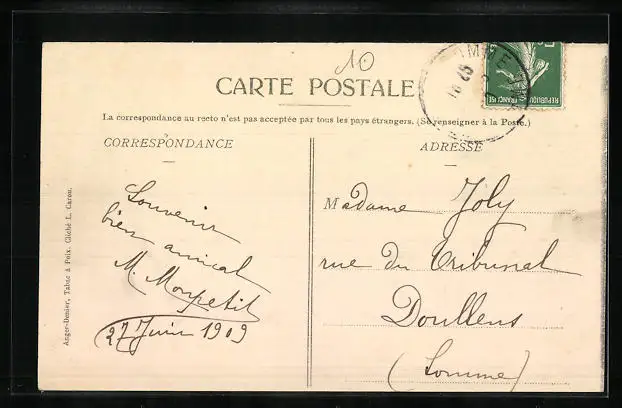 10
CARTE POSTALE
La correspondance au recto n'est pas acceptée par tous les pays étrangers. (Se renseigner à la Poste.)
CORRESPONDANCE
ADRESSE
Souvenir
bien amical
M. Monpetit
27 Juin 1909
Madame Joly
rue du Tribunal
Doullens
(Somme)
Anger-Denier, Tabac à Poix. Cliché L. Caron.
REPUBLIQUE FRANÇAISE